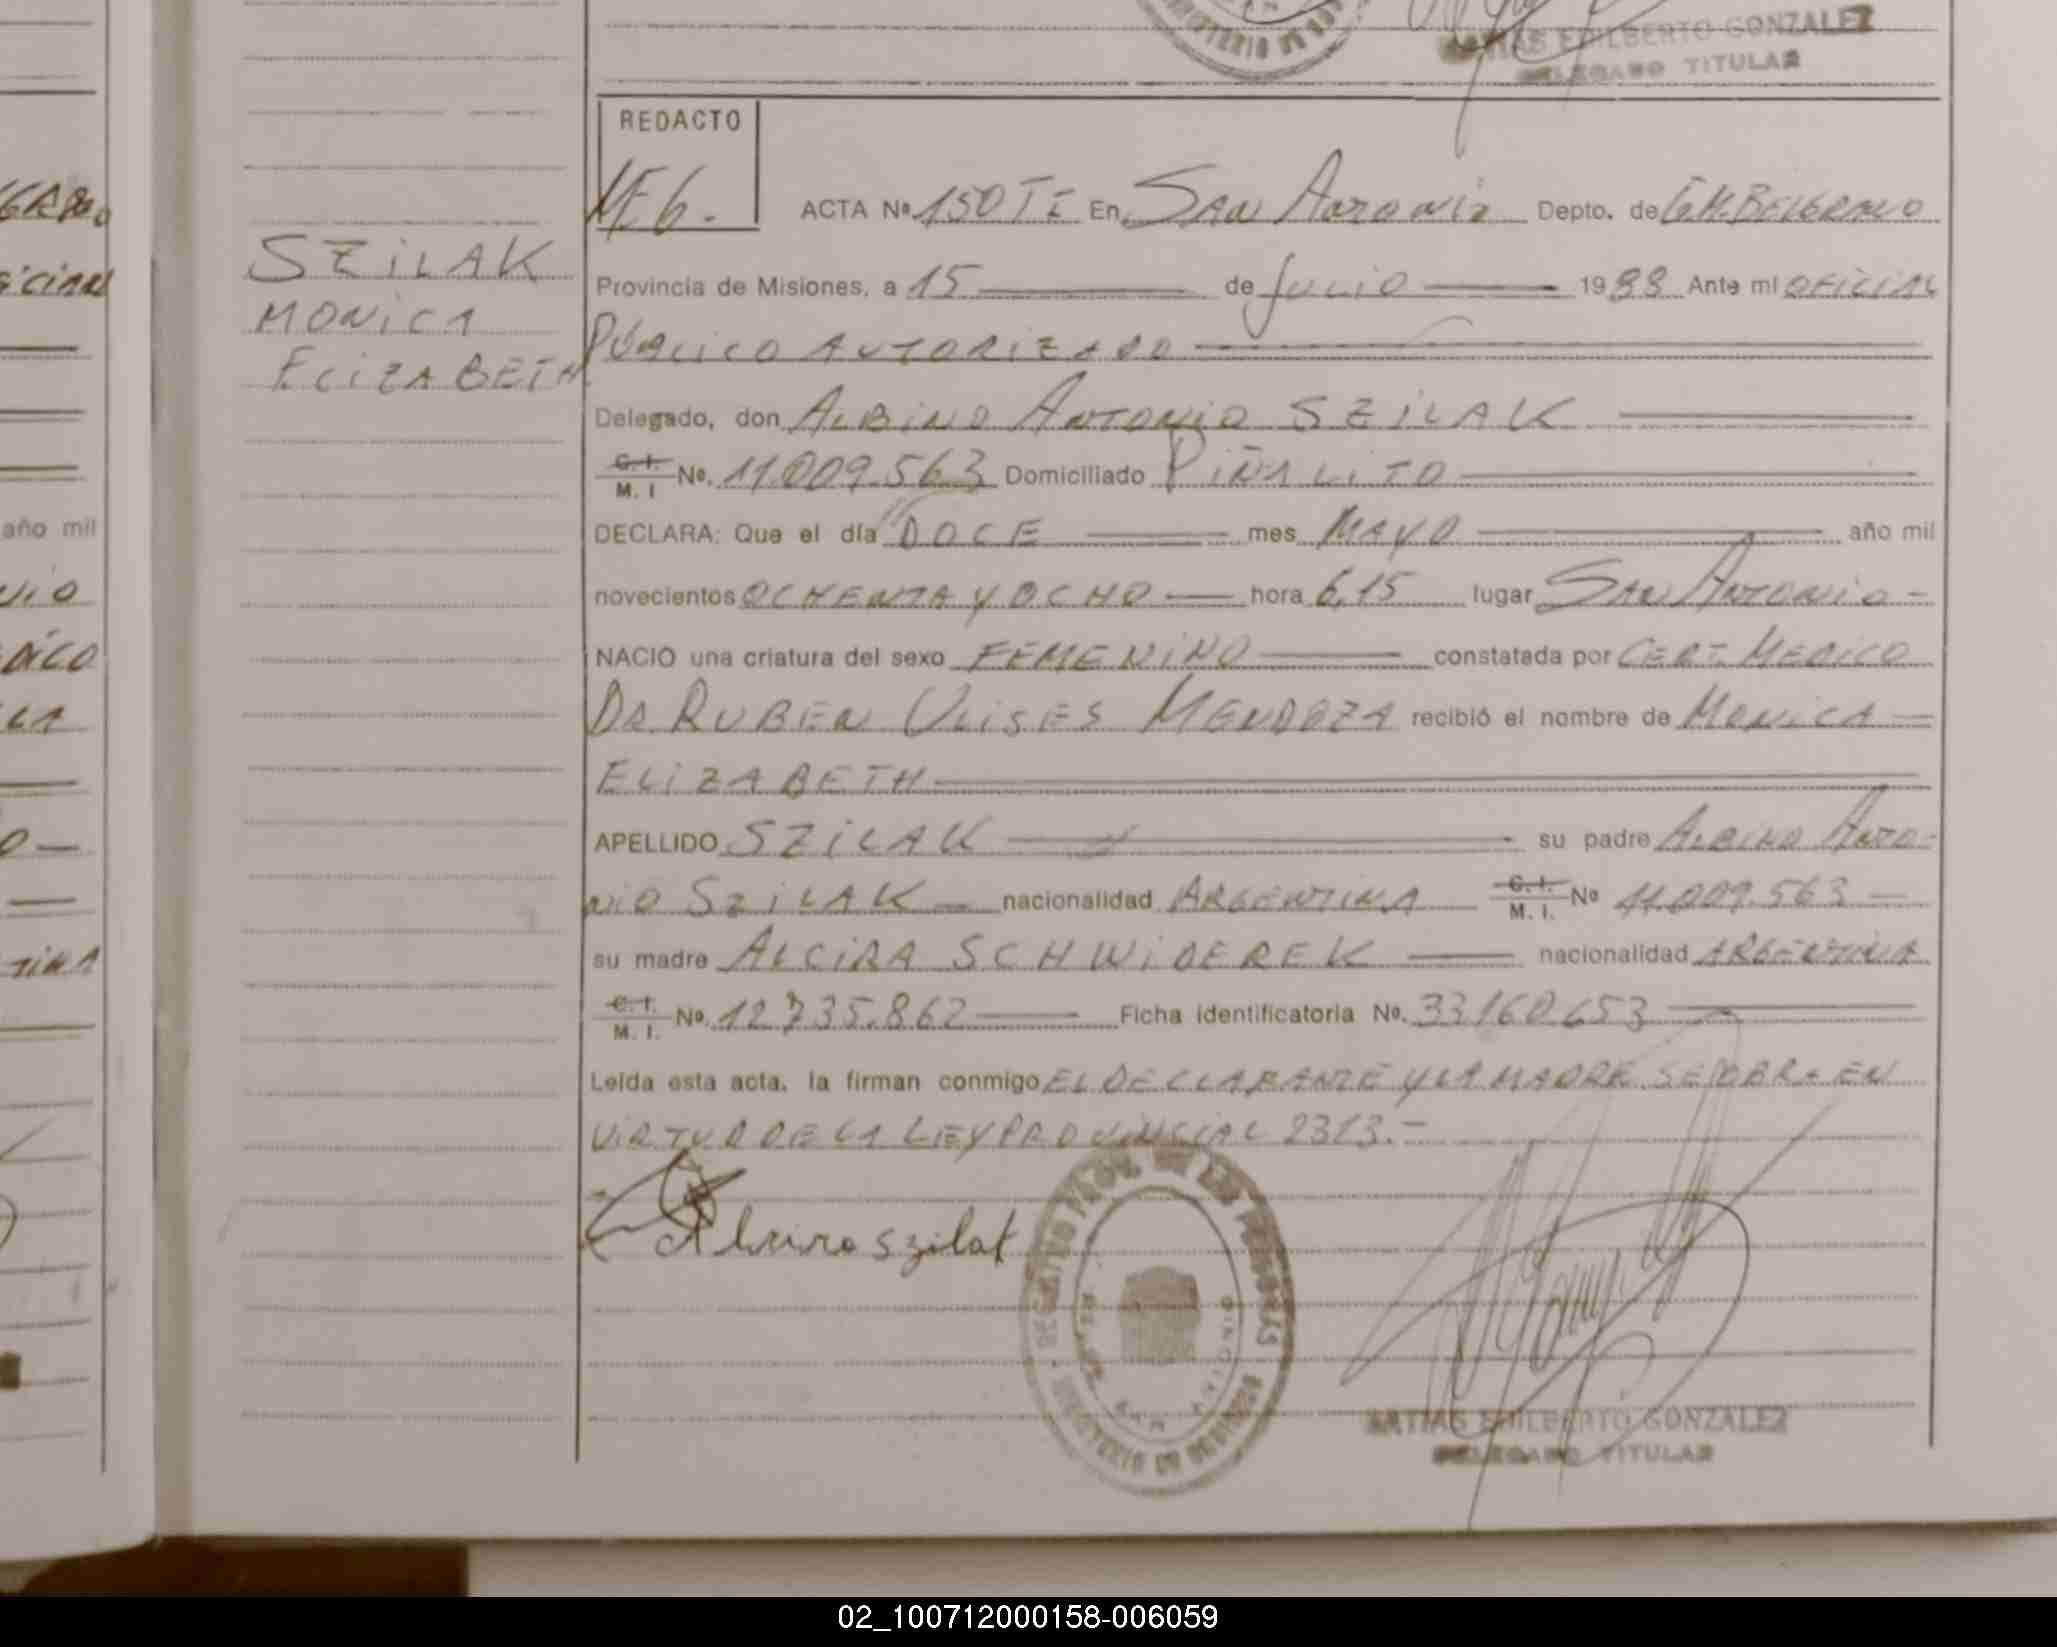 MATIAS EDILBERTO GONZALEZ
DELEGADO TITULAR
REDACTO
ACTA Nº 150 TI En SAN ANTONIO Depto. de GM. BELGRANO
SZILAK
MONICA
ELIZABETH
Provincia de Misiones, a 15 de JULIO 1988 Ante mi OFICIAL
PÚBLICO AUTORIZADO
Delegado, don ALBINO ANTONIO SZILAK
C.I. M.I Nº. 11.009.563 Domiciliado PIÑALITO
DECLARA: Que el día DOCE mes MAYO año mil
novecientos OCHENTA Y OCHO hora 6,15 lugar SAN ANTONIO-
NACIO una criatura del sexo FEMENINO constatada por CERT. MEDICO
DR RUBEN ULISES MENDOZA recibió el nombre de MONICA
ELIZABETH
APELLIDO SZILAK su padre ALBINO ANTO-
NIO SZILAK nacionalidad ARGENTINA C.I. M.I. Nº 11.009.563
su madre ALCIRA SCHWIDEREK nacionalidad ARGENTINA
C.I. M.I. Nº. 12.735.862 Ficha identificatoria No. 33160653
Leída esta acta, la firman conmigo EL DECLARANTE Y LA MADRE. SE LABRA EN
VIRTUD DE LA LEY PROVINCIAL 2313.-
Albino Szilak
REGISTRO PROV. DE LAS PERSONAS
MATIAS EDILBERTO GONZALEZ
DELEGADO TITULAR
año mil
02_100712000158-006059